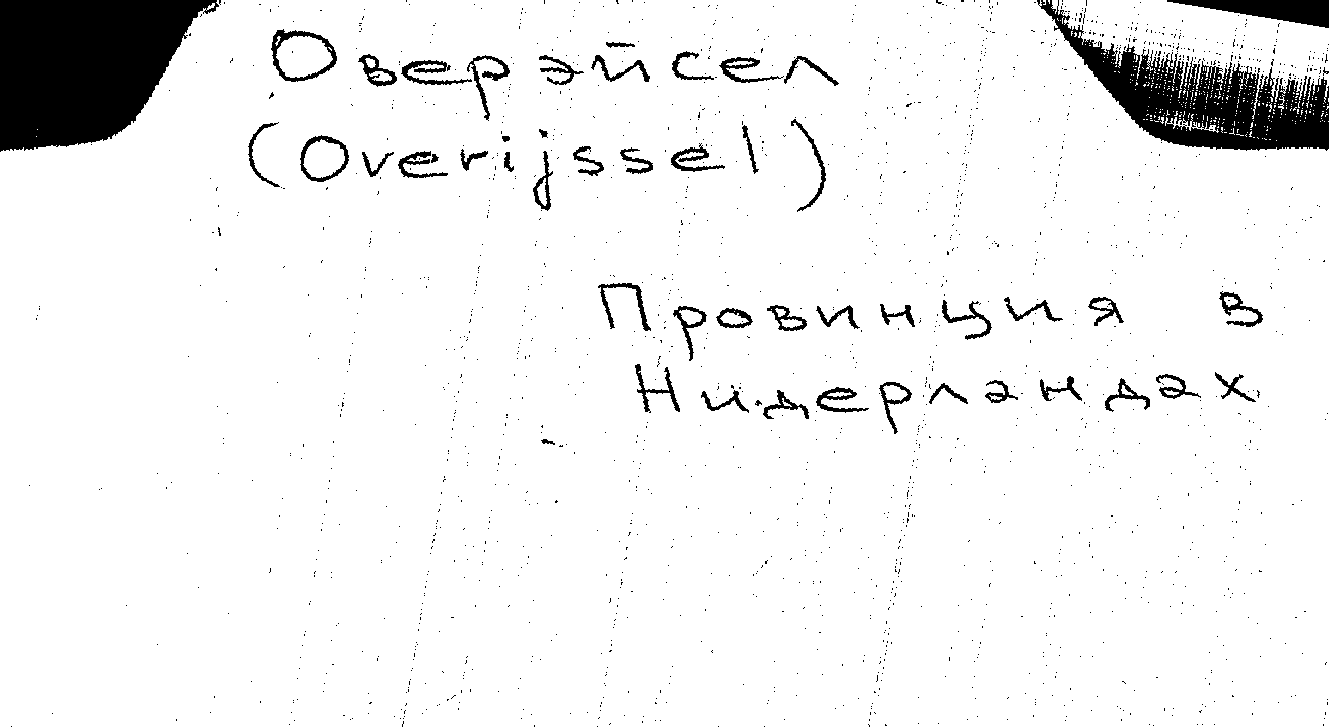 Оверэйсел
(Overijssel)
Провинция в
Нидерландах